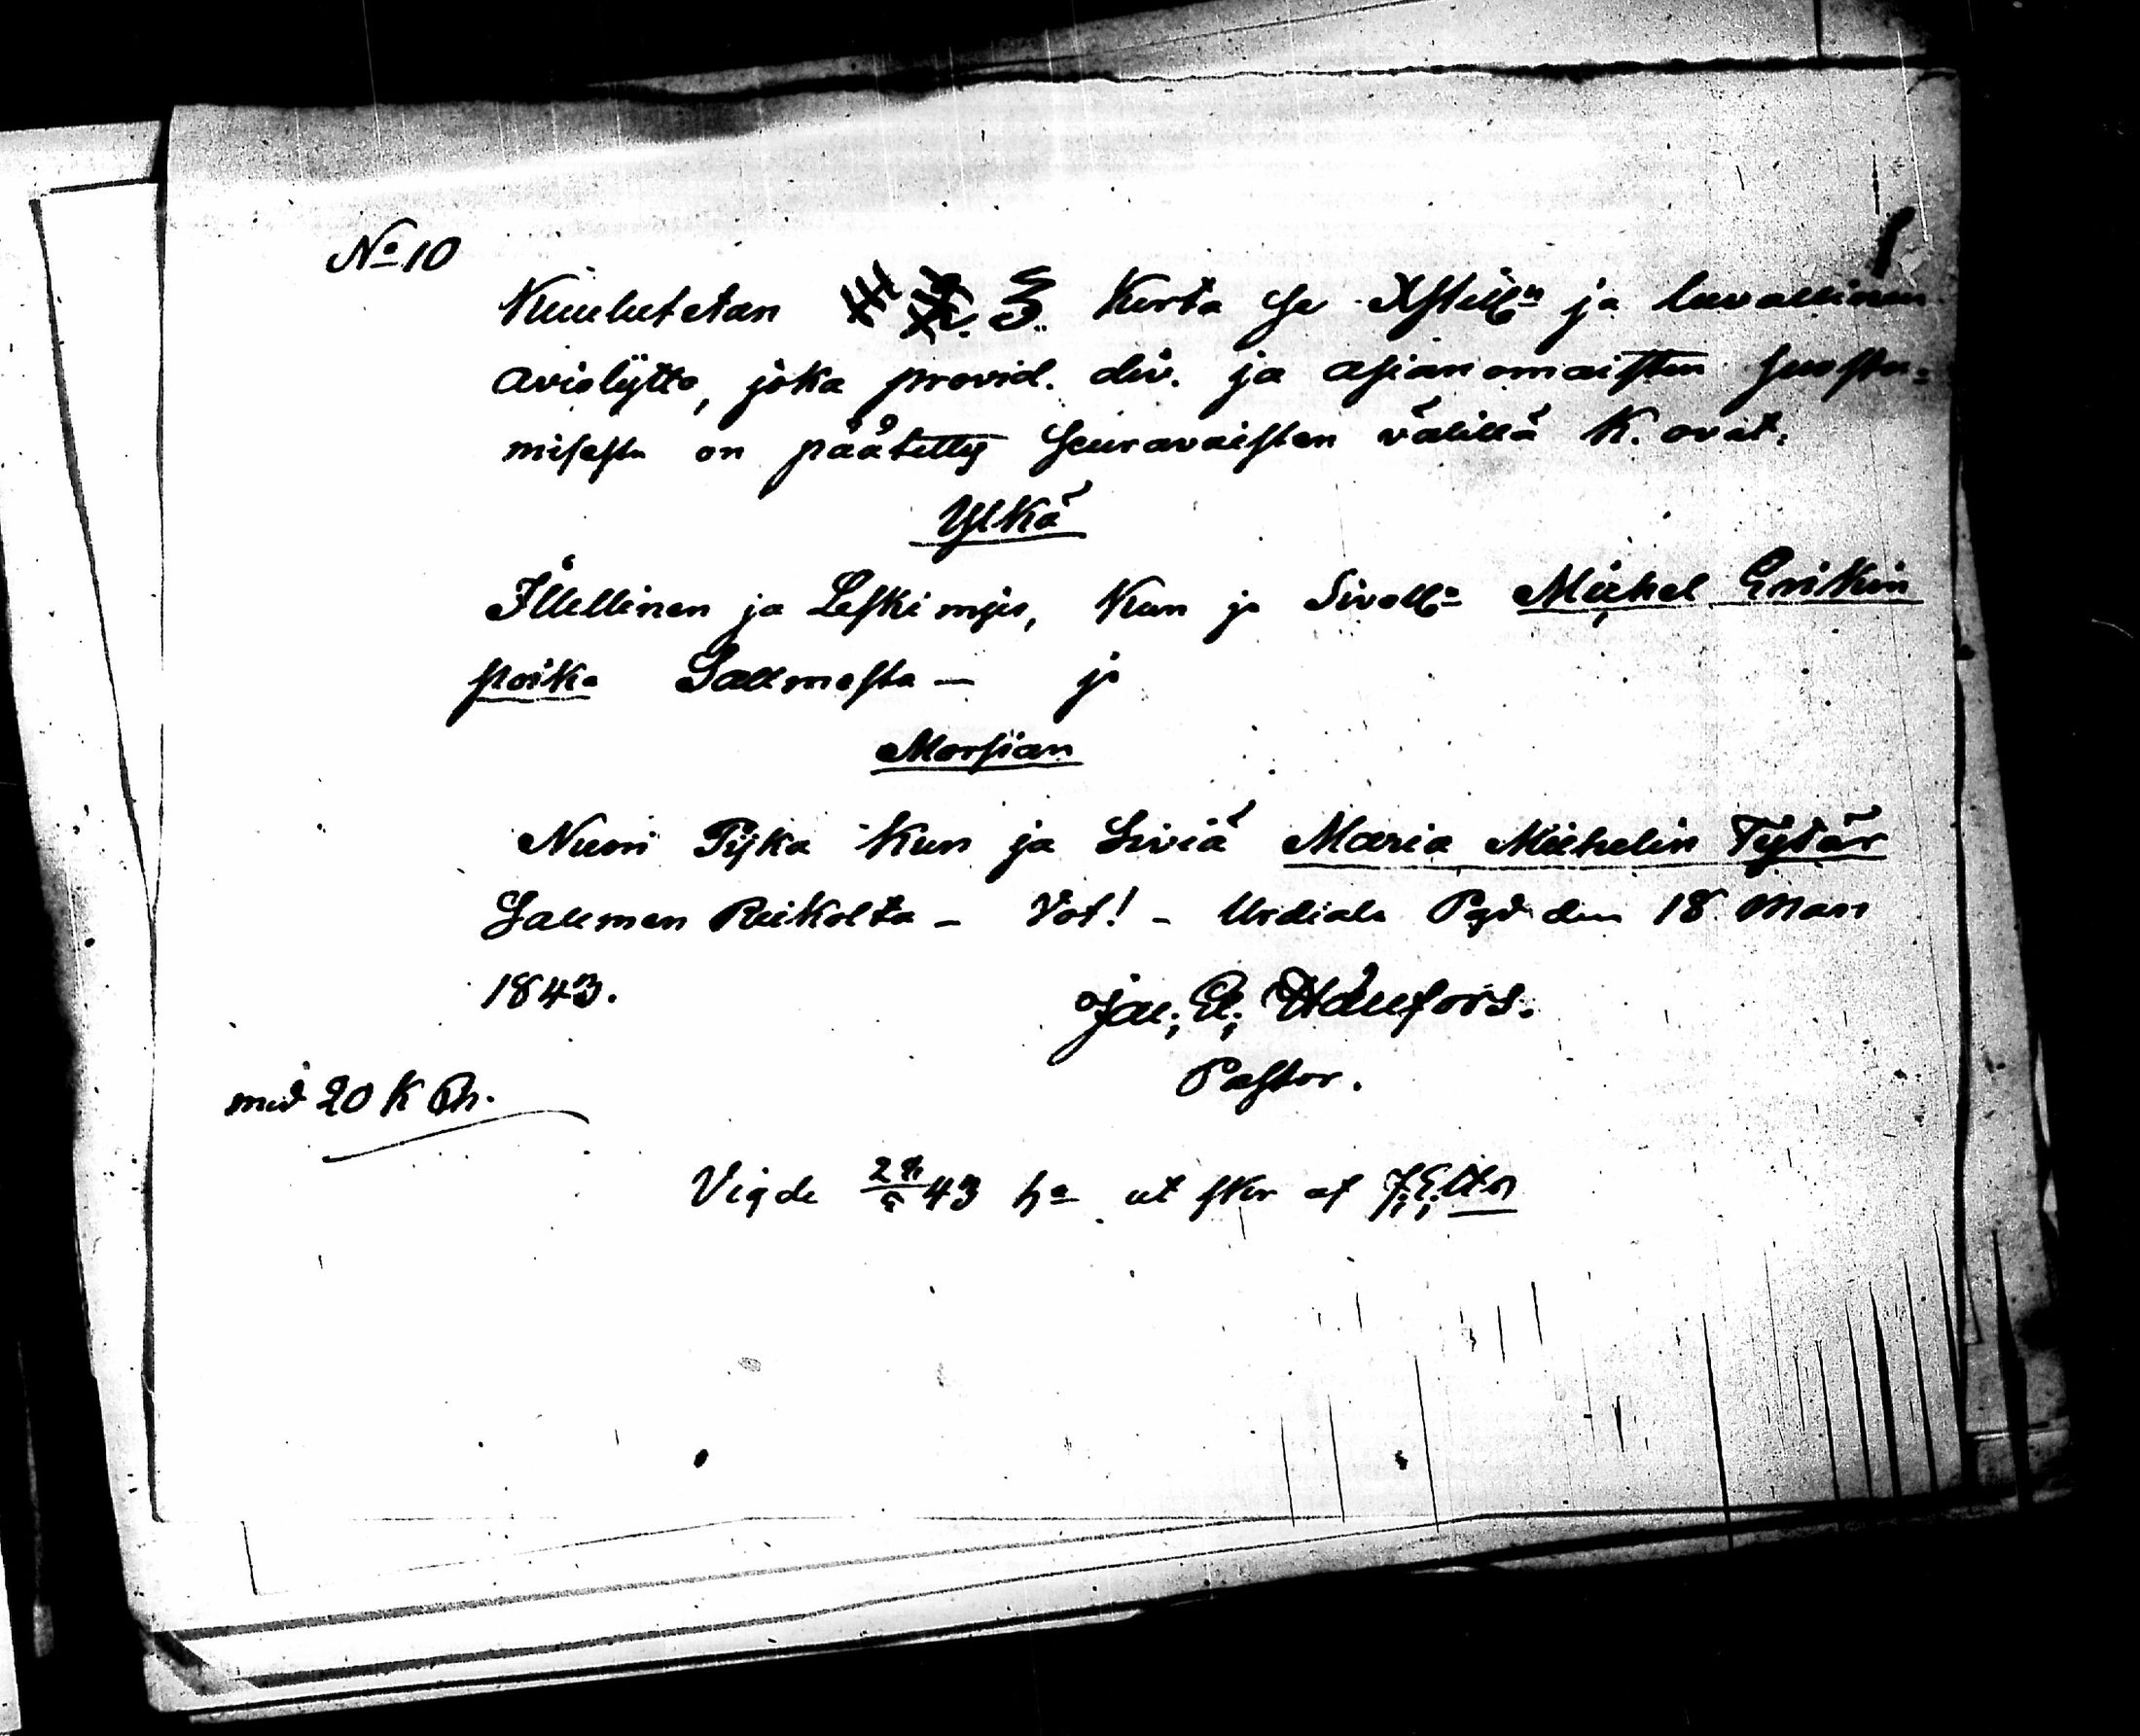 No 10
Kuulutetan 3. Kerta se Xstilln ja luvallinen
aviolijtto, joka provid. div. ja asianomaisten suostu=
misesta on päätetty seuravaisten välillä K. ovat.
Ylkä
Itellinen ja Leskimjes, Kun ja Sivolln Michel Erikin
poika Salmesta — ja
Morsian
Nuori Pijka Kun ja Siviä Maria Michelin Tytär
Salmen Rukolta — Vot! — Urdiala Pgd den 18 Mars
1843.
Jac; E; Hällfors.
Pastor.
med 20 K
Vigde 43 ut sker af